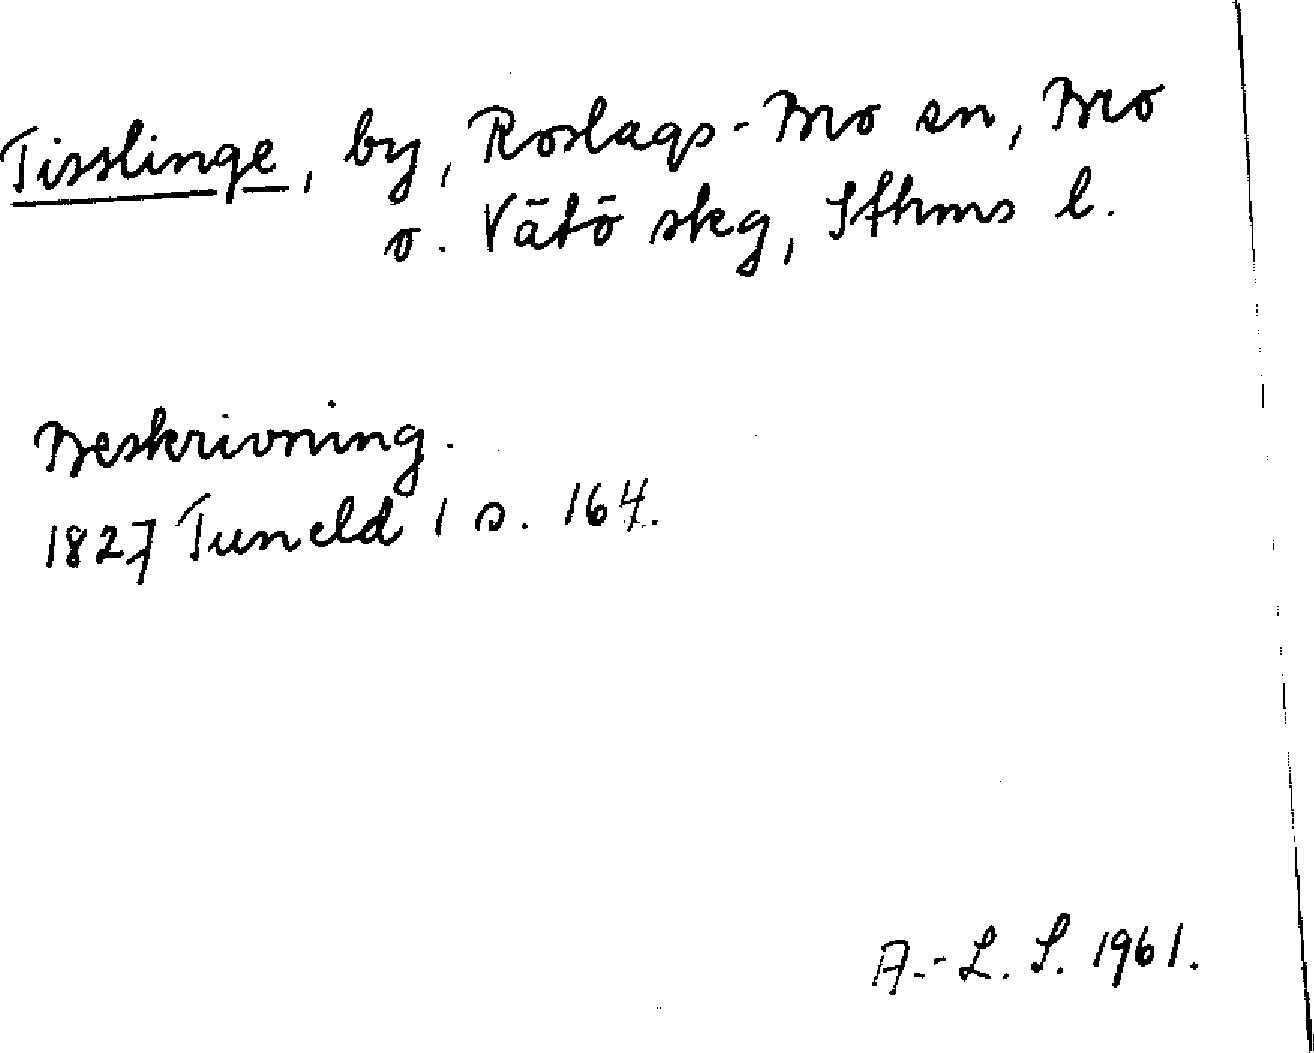 Tisslinge, by, Roslags-Bro sn, Bro
o. Vätö skg, Sthms l.
Beskrivning.
1827 Tuneld 1 s. 164.
A.-L. S. 1961.